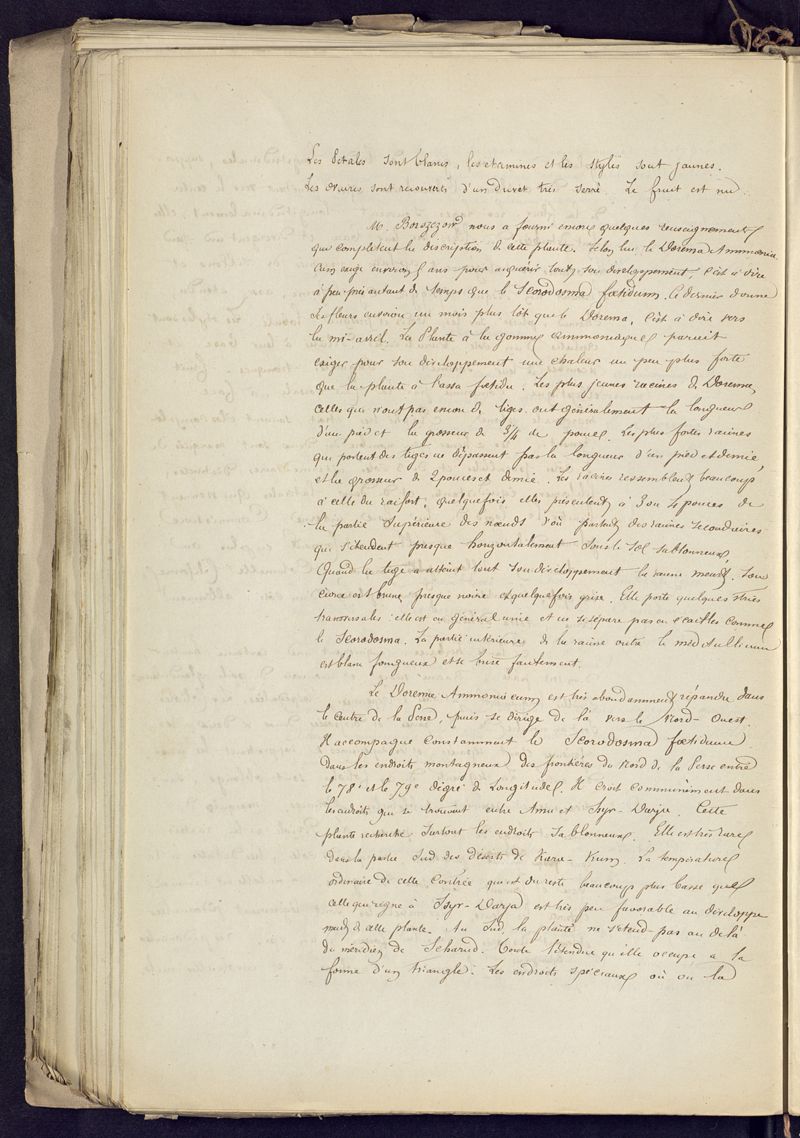 Les Pétales sont blancs, les etamines et les styles sont jaunes.
Les ovaires sont recouverts d'un duvet très serré. Le fruit est nud.
M. Borszczow nous a fourni encore quelques renseignements
qui completent la description de cette plante. Selon lui le Dorema Ammonia
cum exige environ 5 ans pour acquérir tout son developpement, c'est à dire
à peu près autant de temps que le Scorodosma foetidum. Ce dernier donne
des fleurs environ un mois plus tôt que le Dorema, c'est à dire vers
la mi-avril. La Plante à la gomme ammoniaque parait
exiger pour son développement une chaleur un peu plus forte
que la plante à l'assa foetida. Les plus jeunes racines de Dorema,
celles qui n'ont pas encore de tiges ont généralement la longueur
d'un pied et la grosseur de 3/4 de pouce. Les plus fortes racines
qui portent des tiges ne dépassent pas la longueur d'un pied et demie,
et la grosseur de 2 pouces et demie. Les racines ressemblent beaucoup
à celle du raifort, quelquefois elles présentent à 3 ou 4 pouces de
la partie Supérieure des nœuds d'où partent des racines secondaires
qui s'étendent presque horizontalement sous le sol sablonneux.
Quand la tige a atteint tout son développement la racine meurt. Son
écorce est brune presque noire et quelquefois grise. Elle porte quelques stries
transversales : elle est en général unie et ne se sépare pas en écailles comme
le Scorodosma. La partie intérieure de la racine outre le meditullium
est blanc fongueux et se brise facilement.
Le Dorema Ammoniacum est très abondamment répandu dans
le centre de la Perse, puis se dirige de là vers le Nord-Ouest.
Il accompagne constamment le Scorodosma foetidum
dans les endroits montagneux des frontières du Nord de la Perse entre
le 78e et le 79e dégré de Longitude. Il croît communément dans
les endroits qui se trouvent entre Amu et Syr-Darja. Cette
plante recherche surtout les endroits Sablonneux. Elle est très rare
dans la partie Sud des déserts de Kara-Kum. La température
ordinaire de cette Contrée qui est du reste beaucoup plus basse que
celle qui règne à Syr-Darja est très peu favorable au développe
ment de cette plante. Au Sud la plante ne s'etend pas au delà
du méridien de Scharud. Toute l'étendue qu'elle occupe a la
forme d'un triangle. Les endroits spéciaux où on la